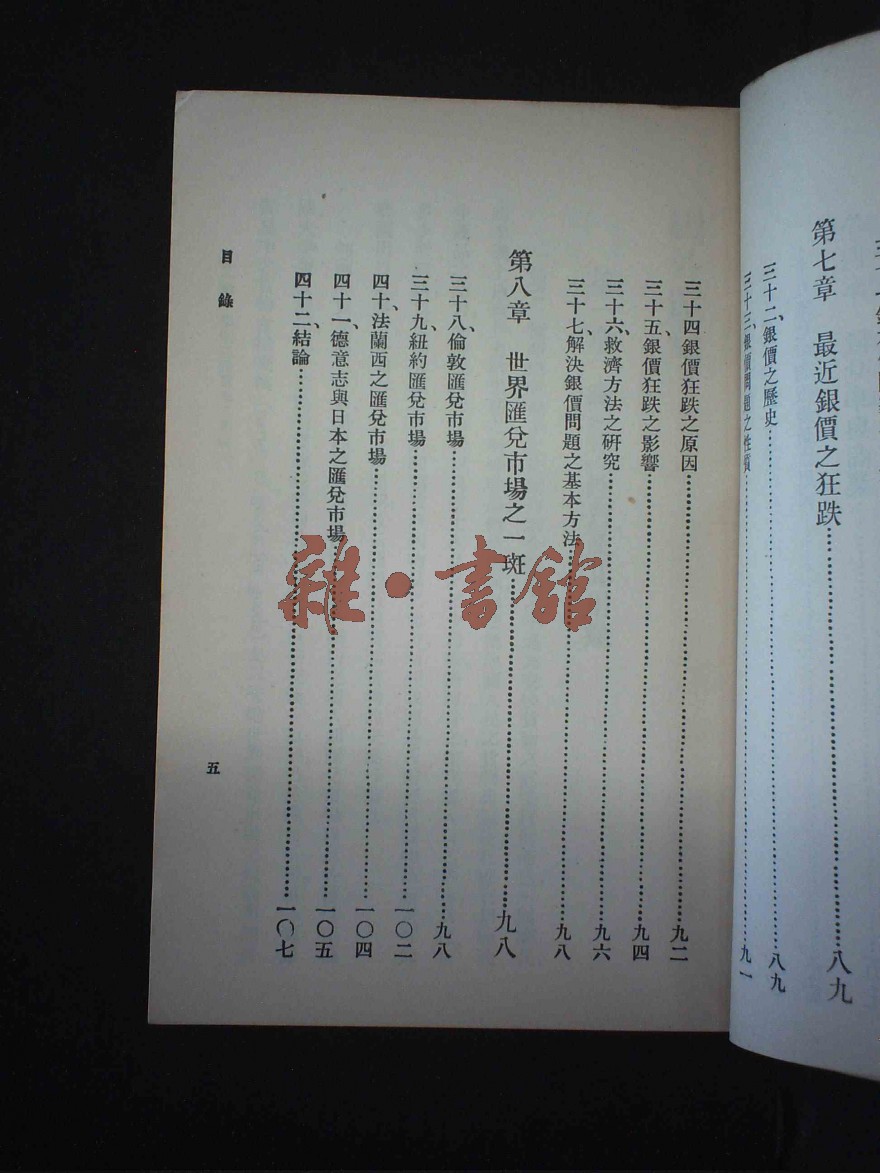 第七章　最近銀價之狂跌……八九
三十二、銀價之歷史……八九
三十三、銀價問題之性質……九一
三十四、銀價狂跌之原因……九二
三十五、銀價狂跌之影響……九四
三十六、救濟方法之研究……九六
三十七、解決銀價問題之基本方法……九八
第八章　世界匯兌市場之一斑……九八
三十八、倫敦匯兌市場……九八
三十九、紐約匯兌市場……一〇二
四十、法蘭西之匯兌市場……一〇四
四十一、德意志與日本之匯兌市場……一〇五
四十二、結論……一〇七
目錄
五
雜·書館